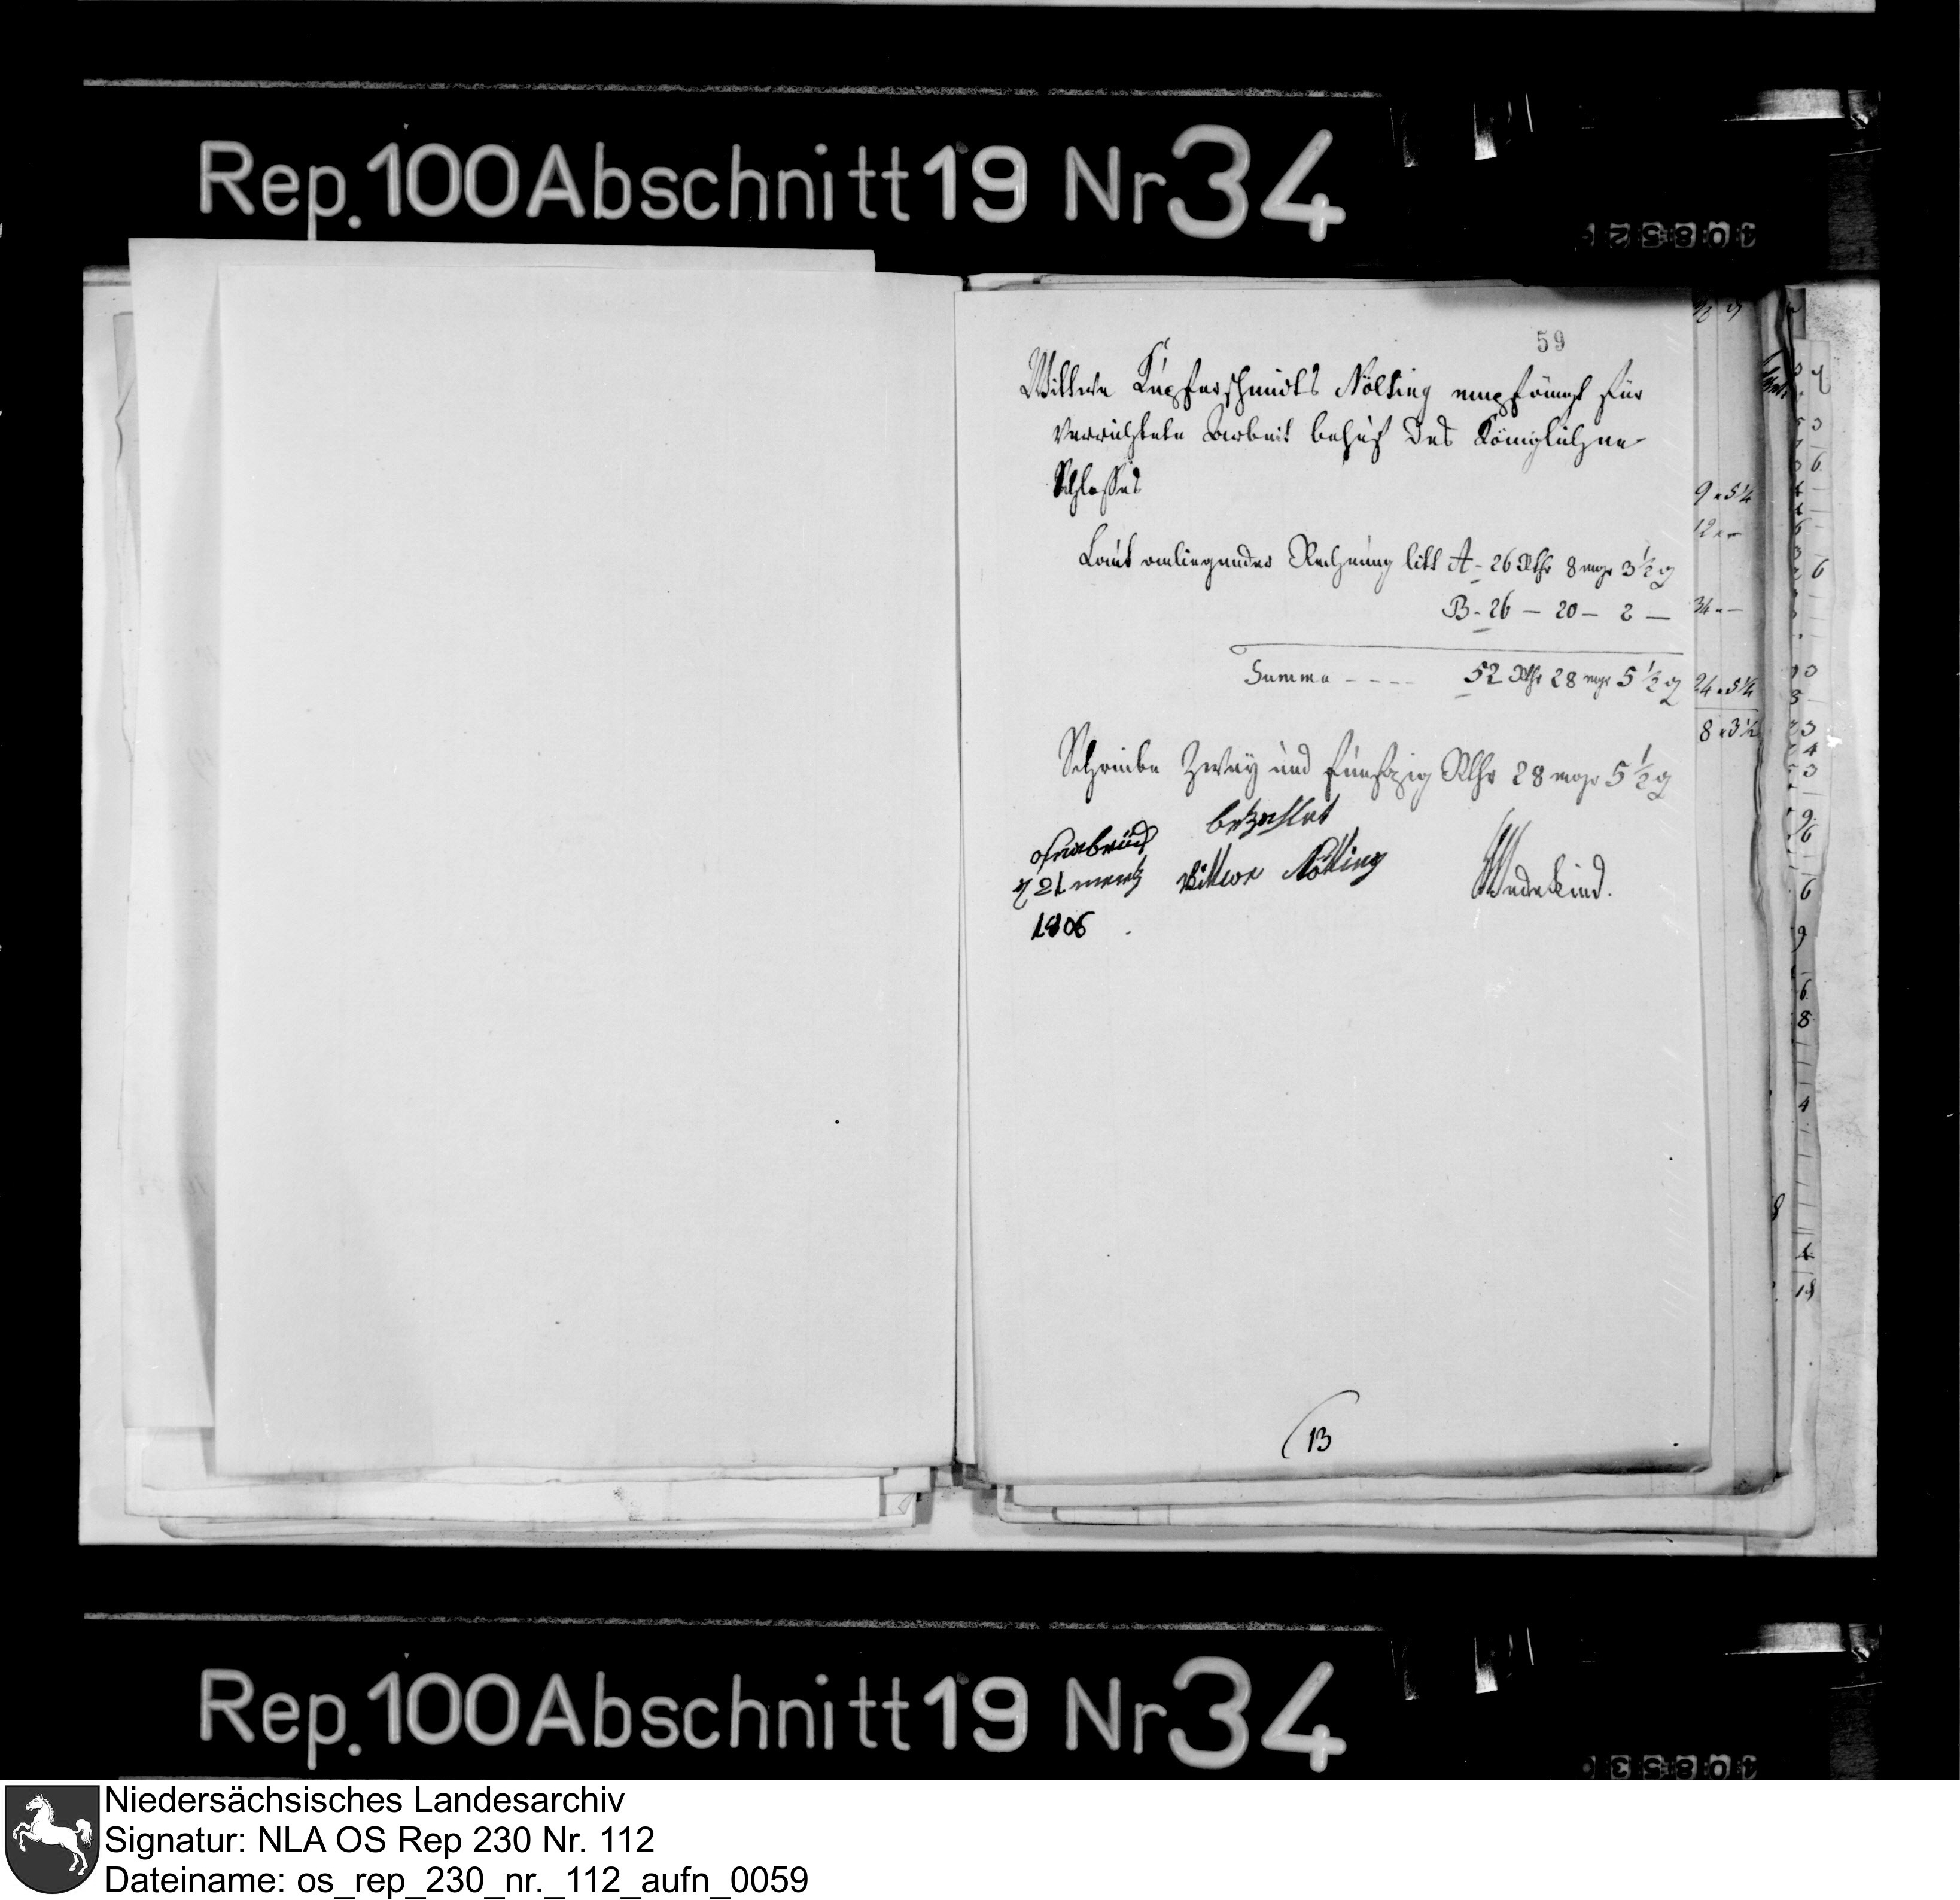 Rep. 100 Abschnitt 19 Nr 34
59
Wittwe Kupferschmidts Nölting empfängt für
verrichtete Arbeit behuf des Königlichen
Schlosses
Laut anliegender Rechnung litt A - 26 Rthr 8 mgr 3 1/2 ₰
B - 26 — 20 — 2 —
Summa - - - - 52 Rthr 28 mgr 5 1/2 ₰
Schreibe Zwey und funfzig Rthr 28 mgr 5 1/2 ₰
osnabrück bezahlet
21 mertz Wittwe Nölting Wedekind.
1806
13
9 " 5 1/4
12 " —
34 " —
24 " 5 1/4
8 " 3 1/2
Rep. 100 Abschnitt 19 Nr 34
Niedersächsisches Landesarchiv
Signatur: NLA OS Rep 230 Nr. 112
Dateiname: os_rep_230_nr._112_aufn_0059